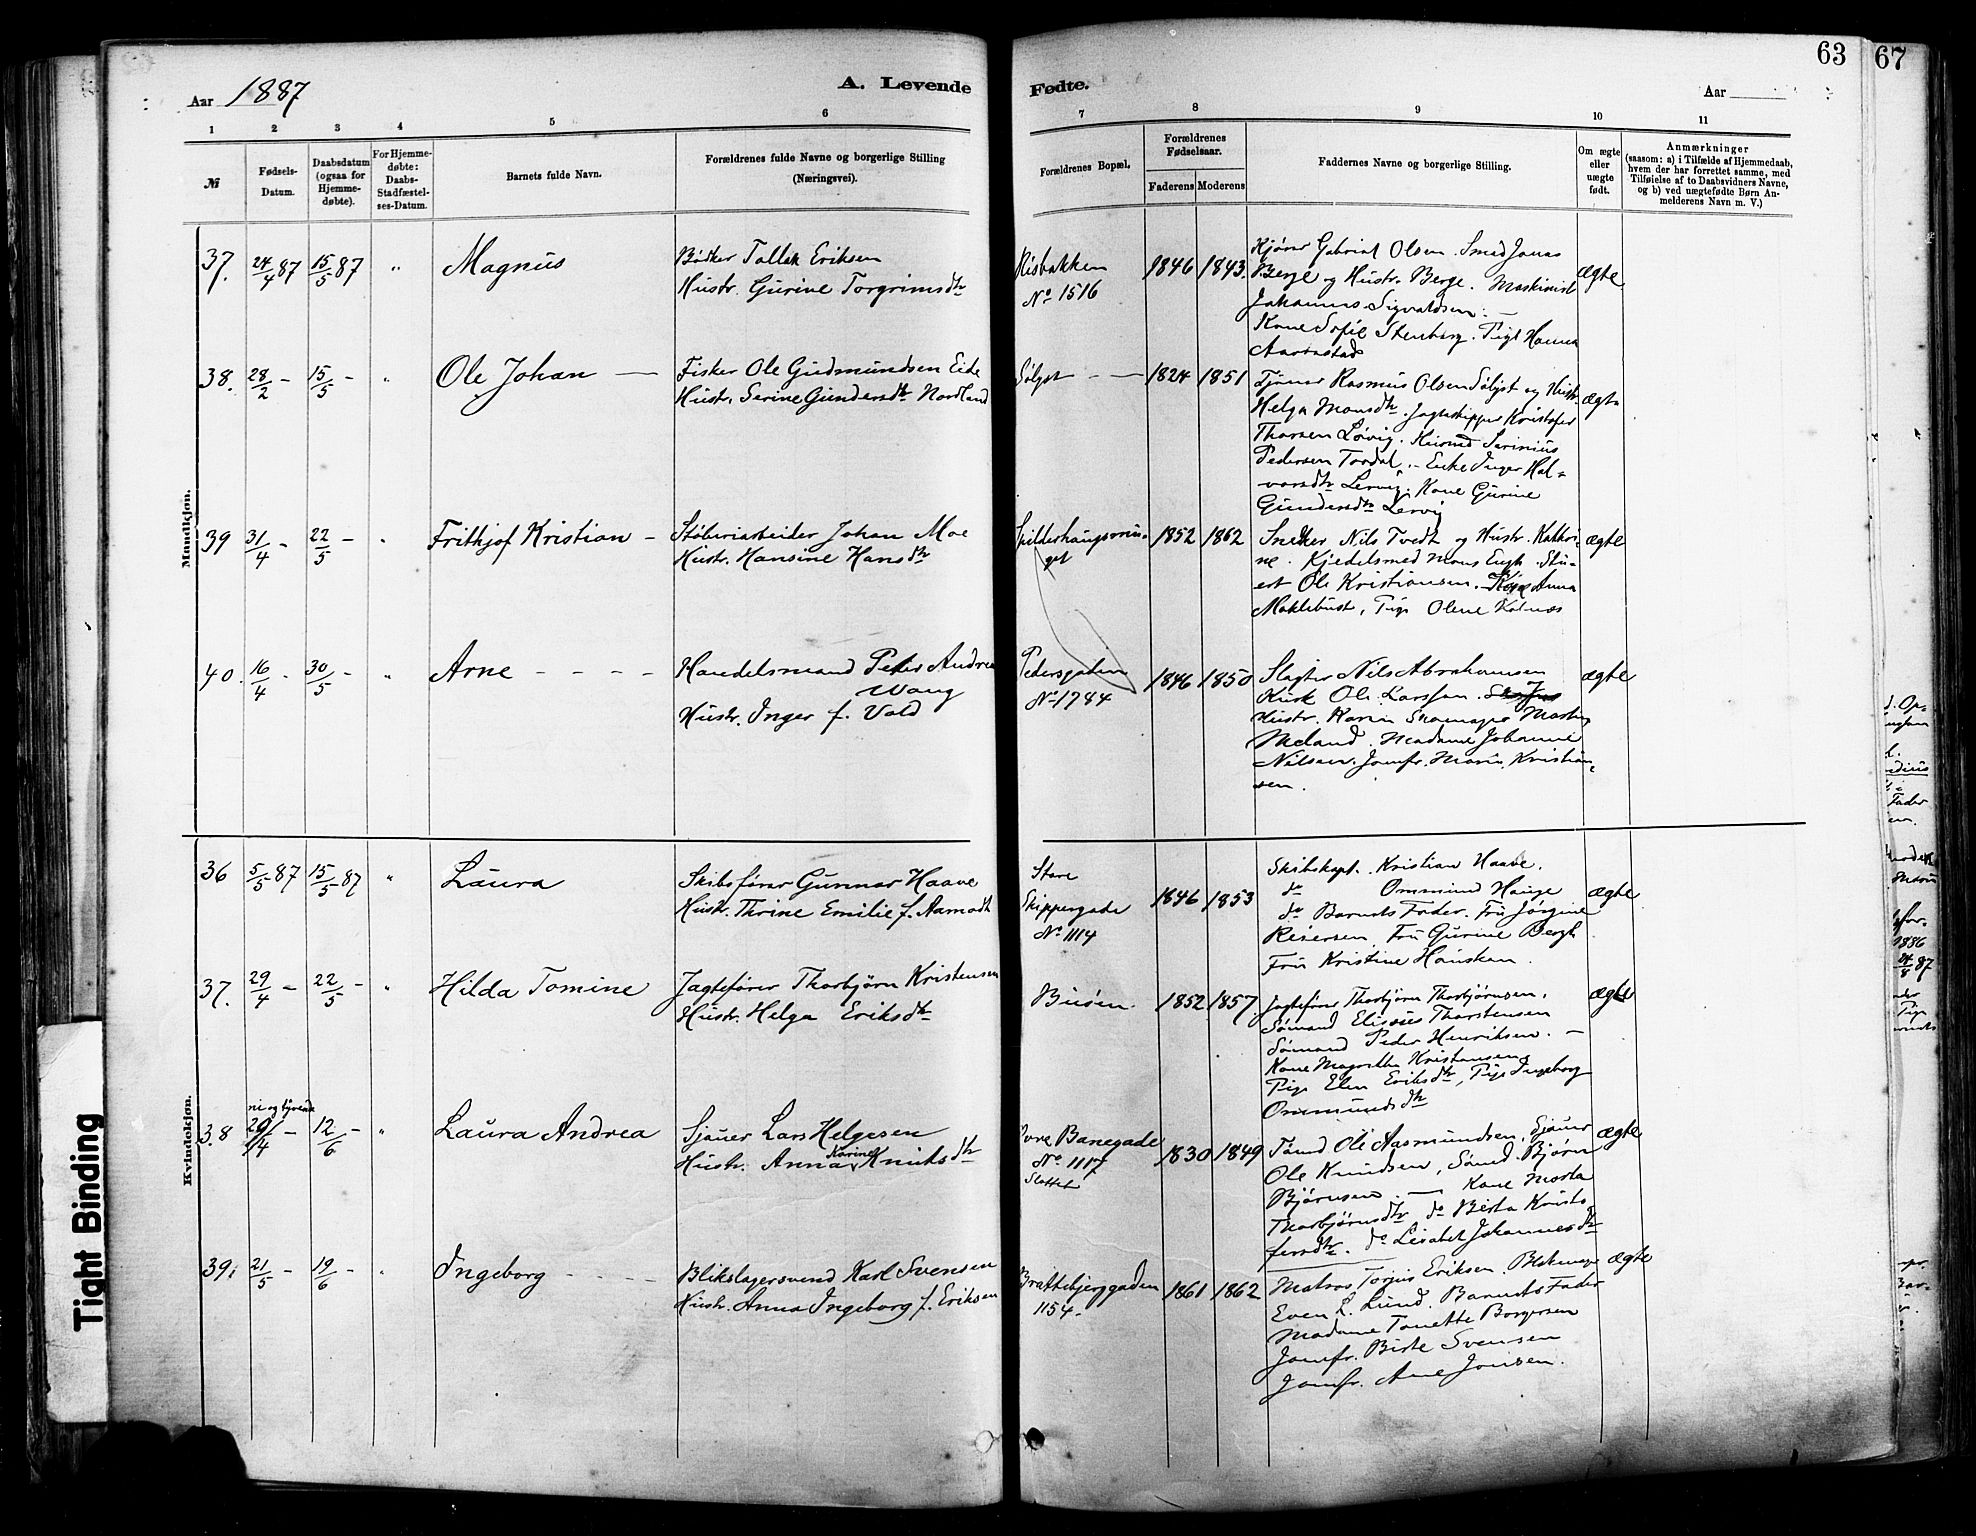 63
67
Aar 1887
A. Levende
Fødte.
Aar
1 2 3 4 5 6
7 8 9 10 11
№
Fødsels-
Datum.
Daabsdatum
(ogsaa for
Hjemme-
døbte).
For Hjemme-
døbte:
Daabs-
Stadfæstel-
ses-Datum.
Barnets fulde Navn.
Forældrenes fulde Navne og borgerlige Stilling
(Næringsvei).
Forældrenes Bopæl,
Forældrenes
Fødselsaar.
Faderens Moderens
Faddernes Navne og borgerlige Stilling.
Om ægte
eller
uægte
født.
Anmærkninger
(saasom: a) i Tilfælde af Hjemmedaab,
hvem der har forrettet samme, med
Tilføielse af to Daabsvidners Navne,
og b) ved uægtefødte Børn An-
melderens Navn m. V.)
Mandkjøn.
37. 24/4 87 15/5 87 " Magnus
Bødker Tallak Eriksen
Hustr. Gurine Torgrimsdtr
Risbakken
No 1516
1846 1843.
Kjører Gabriel Olsen. Smed Jonas
Berge og Hustr. Berge. Maskinist
Johannes Sigvaldsen. —
Kone Sofie Stenberg. Pige Hanna
ægte
38. 28/2 - 15/5 - " Ole Johan —
Fisker Ole Gudmundsen Eide
Hustr. Serine Gundersdtr Nordland
Sølyst — —
1824 1851
Rasmus Olsen Sølyst og Hustr.
Helga Monsdtr. Jagteskipper Kristofer
Thorsen Løvig.
Pedersen Tordal. — Enke Inger Hal-
vorsdtr Lervig. Kone Gurine
Gundersdtr Lervig
ægte
39 31/4 - 22/5 - " Frithjof Kristian -
Støberiarbeider Johan Moe
Hustr. Hansine Hansdtr
1852 1862
Snedker Nils Tvedt og Hustr. Kathri-
ne. Kjedelsmed Mons Eegh. Stu-
ert Ole Kristiansen. Anna
Maklebust, Pige Olene Kalnæs
ægte
40. 16/4 - 30/5 - " Arne - - - -
Handelsmand Peter Andrea
Wang
Hustr. Inger f. Vold
Pedersgaden
No 1784
1846 1850
Slagter Nils Abrahamsen
Ole Larsson.
Hustr. Karin
Meland. Madame Johanne
Nilsen. Jomfr. Maria Kristian-
sen.
ægte
Kvindekjøn.
36 5/5 87 15/5 87 " Laura
Skibsfører Gunnar Haave
Hustr. Thrine Emilie f. Aamodt
Store
Skippergade
No 1114
1846 1853
Skibskapt. Kristian Haave.
do Ommund Hauge
do Barnets Fader. Fru Jørgine
Reiersen, Fru Gurine Bergh
Fru Kristine Hausken.
ægte
37. 29/4 - 22/5 - " Hilda Tomine
Jagtefører Thorbjørn Kristensen
Hustr. Helga Eriksdtr
Buøen.
1852 1857.
Jagtefører Thorbjørn Thorbjørnsen.
Sømand Elisæus Thorstensen
Sømand Peder Henriksen. —
Kone Magrethe Kristensen.
Pige Elen Eriksdtr, Pige Ingeborg
Ommundsdtr
ægte
ni og tyvende
38 29/4 - 12/6 - " Laura Andrea
Sjauer Lars Helgesen
Hustr. Anna Karine Knutsdtr
Øvre Banegade
No 1117
Slottet
1830 1849
Tømd Ole Aasmundsen, Sjauer
Ole Knudsen, Sømd. Bjørn
Bjørnsen. — Kone Marta
Thorbjørnsdtr do Berta Kristo
fersdtr. do Lisabet Johannesdtr
ægte
39. 21/5 - 19/6 - " Ingeborg - - - -
Blikslagersvend Karl Svensen
Hustr. Anna Ingeborg f. Eriksen
Brattebjerggaden
1154.
1861 1862
Matros Torjus Eriksen.
Even L. Lund. Barnets Fader
Madame Tonette Borgersen
Jomfr. Birte Svensen
Jomfr. Ane Jonsen.
ægte
Tight Binding